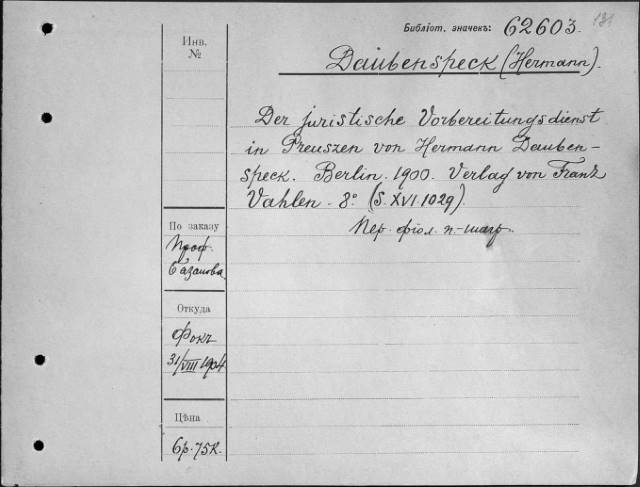 Библіот. значекъ: 62603. 131
Инв.
№
Daubenspeck (Hermann).
Der juristische Vorbereitungsdienst
in Preuszen von Hermann Dauben-
speck. Berlin. 1900. Verlag von Franz
Vahlen. 8° (S. XVI. 1029).
Пер. фіол. п.-шагр.
По заказу
Проф.
Базанова
Откуда
Фокъ
31/VIII 1904
Цѣна
6р. 75к.